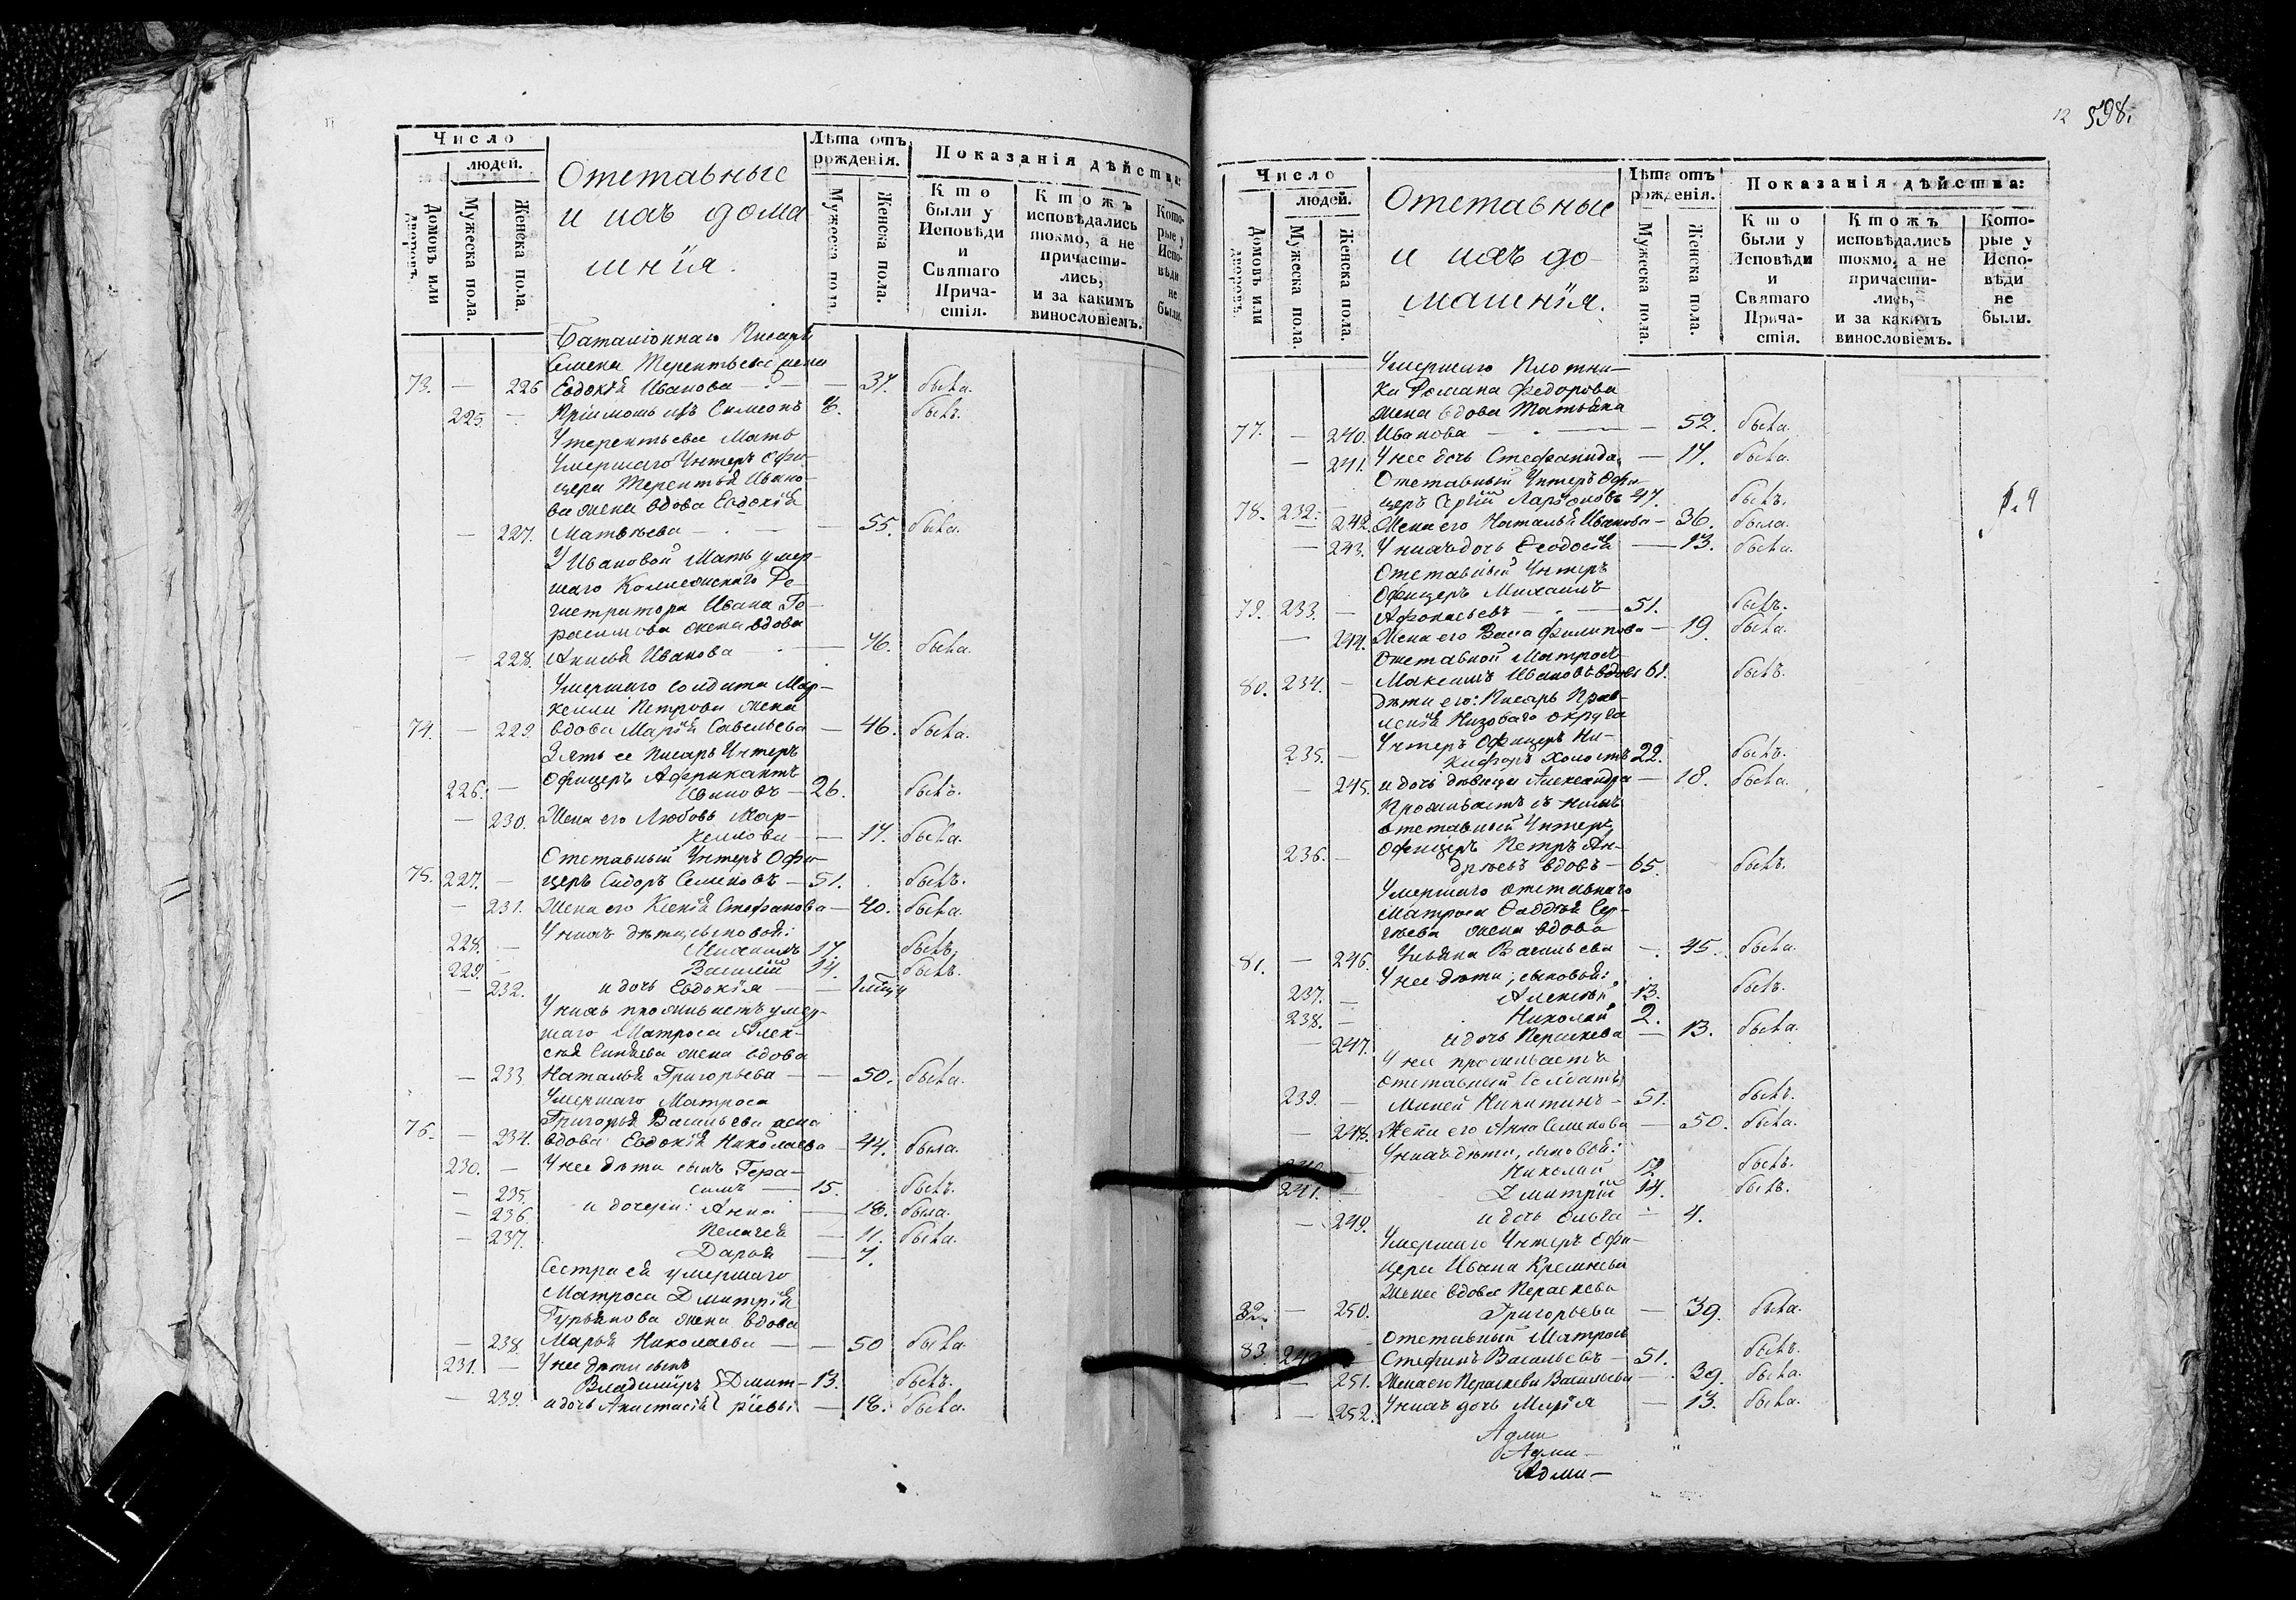 Число
людей.
Домовъ или дворовъ.
Мужеска пола.
Женска пола.
Отставные
и ихъ дома
шнія.
Лѣта отъ рожденія.
Мужеска пола.
Женска пола.
Показанія дѣйства:
Кто были у Исповѣди и Святаго Причастія.
Ктожъ исповѣдались токмо, а не причастились, и за какимъ винословіемъ.
Которые у Исповѣди не были.
Баталіоннаго Писаря
Семена Терентьева жена
73. — 226 Евдокія Иванова — — 37. была.
225 — Пріимышъ ихъ Симеонъ 8. былъ.
У Терентьева Мать
Умершаго Унтеръ Офи-
цера Терентья Ивано-
ва жена вдова Евдокія
— 227. Матвѣева — — 55. была.
У Ивановой Мать умер-
шаго Коллежскаго Ре-
гистратора Ивана Ге-
расимова жена вдова
— 228. Анисья Иванова — — 76. была.
Умершаго Солдата Мар-
келла Петрова жена
74. — 229. вдова Марія Савельева — 46. была.
Зять ее Писарь Унтеръ
Офицеръ Африкантъ
226. — Ивановъ — 26. былъ.
— 230. Жена его Любовь Мар-
келлова — — 17. была.
Отставный Унтеръ Офи-
75. 227. — церъ Сидоръ Семеновъ — 51. былъ.
— 231. Жена его Ксенія Стефанова — 40. была.
У нихъ дѣти, сыновья:
228. — Михаилъ 17. былъ.
229. — Василій 14. былъ.
— 232. и дочь Евдокія —
У нихъ проживаетъ умер-
шаго Матроса Алек-
сѣя Синяева жена вдова
— 233 Наталья Григорьева — — 50. была.
Умершаго Матроса
Григорья Васильева жена
76. — 234. вдова Евдокія Николаева — 44. была.
230. — У нее дѣти сынъ Гера-
симъ — 15. былъ.
— 235. и дочери: Анна — 18. была.
— 236. Пелагея — 11. была.
— 237. Дарья — 7.
Сестра ея умершаго
Матроса Дмитрія
Гурьянова жена вдова
— 238. Марья Николаева — — 50 была.
231. — У нее дѣти сынъ
Владимиръ } Дмит- 13. былъ.
— 239. и дочь Анастасія } ріевы — 18. была.
12 598.
Число
людей.
Домовъ или дворовъ.
Мужеска пола.
Женска пола.
Отставные
и ихъ до-
машнія.
Лѣта отъ рожденія.
Мужеска пола.
Женска пола.
Показанія дѣйства:
Кто были у Исповѣди и Святаго Причастія.
Ктожъ исповѣдались токмо, а не причастились, и за какимъ винословіемъ.
Которые у Исповѣди не были.
Умершаго Плотни-
ка Романа Федорова
жена вдова Татьяна
77. — 240. Иванова — — 52. была.
— 241. У нее дочь Стефанида — 17. была.
Отставный Унтеръ Офи-
78. 232. — церъ Сергій Ларіоновъ 47. былъ.
— 242. Жена его Наталья Иванова — 36. была.
— 243. У нихъ дочь Ѳеодосія — 13. была.
Отставный Унтеръ
Офицеръ Михаилъ
79. 233. — Афонасьевъ — 51. былъ.
— 244. Жена его Васса Филипова — 19. была.
Отставной Матросъ
80. 234. — Максимъ Ивановъ вдовъ 61. былъ.
Дѣти его: Писарь Прав-
ленія Низоваго округа
Унтеръ Офицеръ Ни-
235. — кифоръ холостъ 22. былъ.
— 245. и дочь дѣвица Александра — 18. была.
Проживаетъ съ нимъ
отставный Унтеръ
Офицеръ Петръ Ан-
236. — дреевъ вдовъ — 65. былъ.
Умершаго отставнаго
Матроса Ѳаддѣя Сер-
гѣева жена вдова
81. — 246. Ульяна Васильева — 45. была.
У нее дѣти, сыновья:
237. — Алексѣй 13. былъ.
238. — Николай 2.
— 247. и дочь Пераскева — 13. была.
У нее проживаетъ
отставный Солдатъ
239. — Миней Никитинъ — 51. былъ.
— 248. Жена его Анна Семенова — 50. была.
У нихъ дѣти, сыновья:
Николай 12 былъ.
241. — Дмитрій 14. былъ.
— 249. и дочь Ольга — 4.
Умершаго Унтеръ Офи-
цера Ивана Кремнева
жена вдова Пераскева
82. — 250. Григорьева — 39. была.
Отставный Матросъ
83. Стефанъ Васильевъ — 51. былъ.
— 251. Жена его Пераскева Васильева — 39. была.
— 252. У нихъ дочь Марія — 13. была.
Адми
Адми —
Адми —